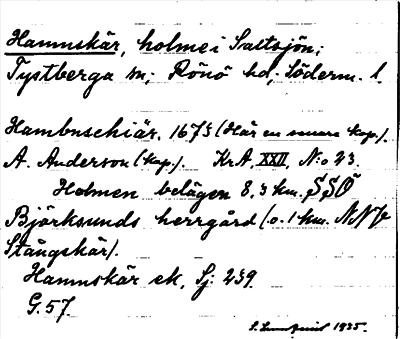 Hamnskär, holme i Saltsjön;
Tystberga sn; Rönö hd; Söderm. l.
Hambnschiär. 1673 (Här en senare kop.).
A. Anderson (kop.). KrA. XXII, N:o 23.
Holmen belägen 8,3 km. SSÖ
Björksunds herrgård (o. 1 km. NNV
Stångskär).
Hamnskär ek, Sj: 239.
G. 57.
1935.